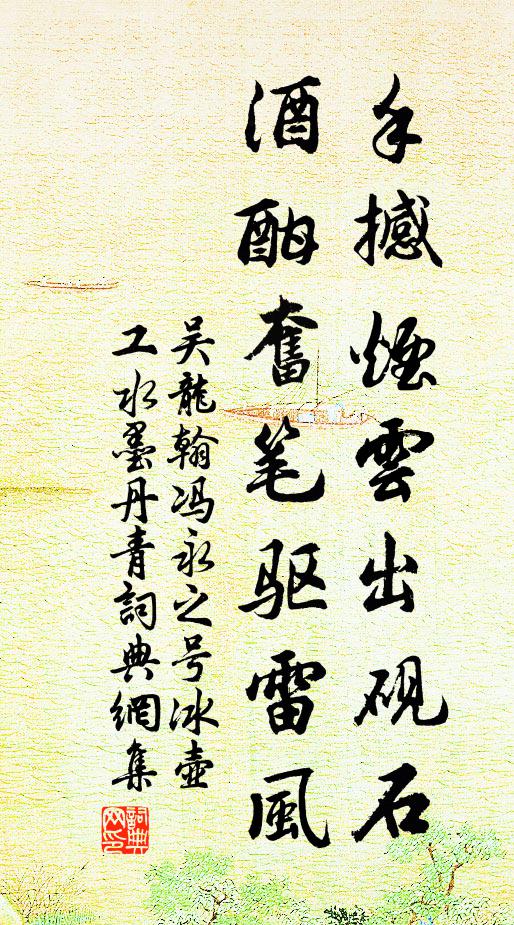 手撼煙雲出砚石
酒酣奮笔驱雷風
吴龍翰冯永之号冰壶
工水墨丹青詞典網集
詞典
网印